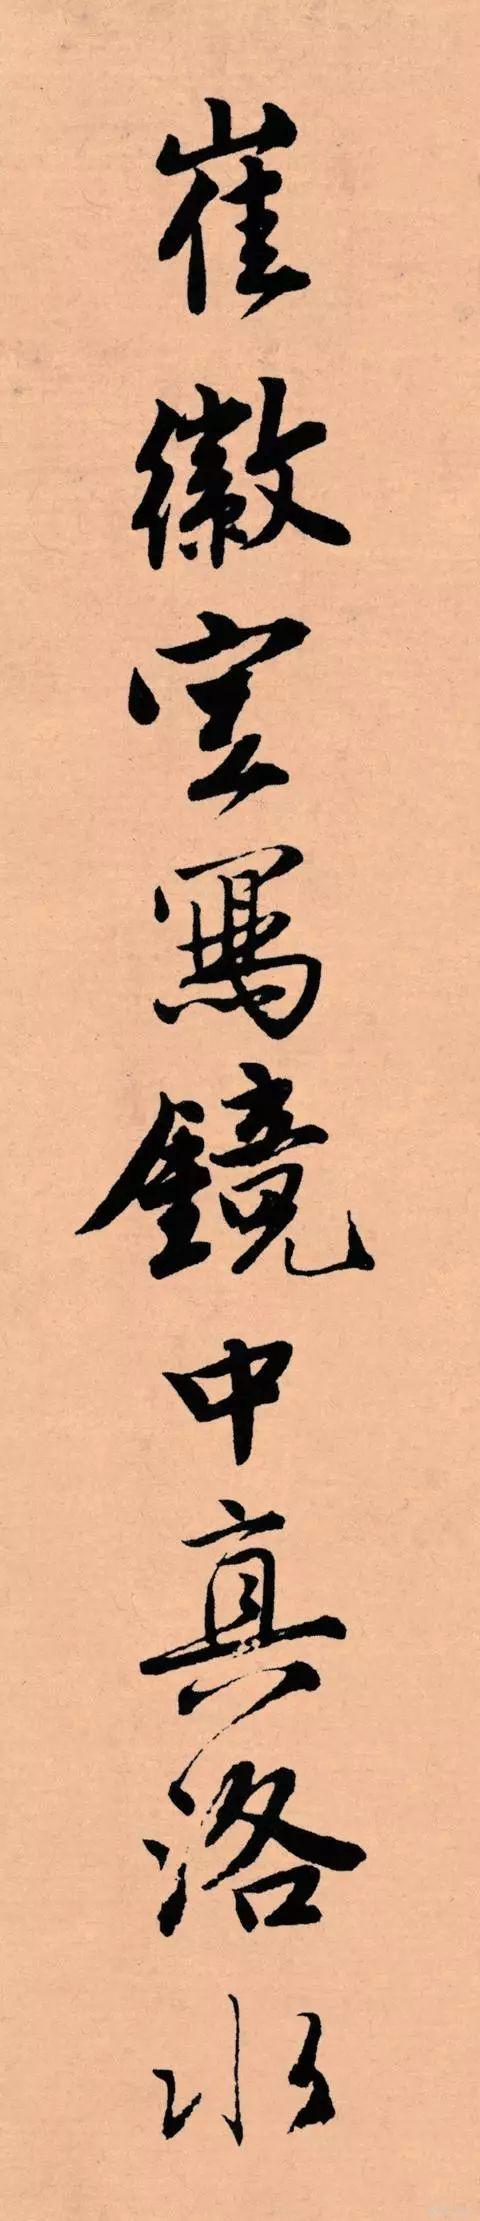 崔徽空寫鏡中真洛水